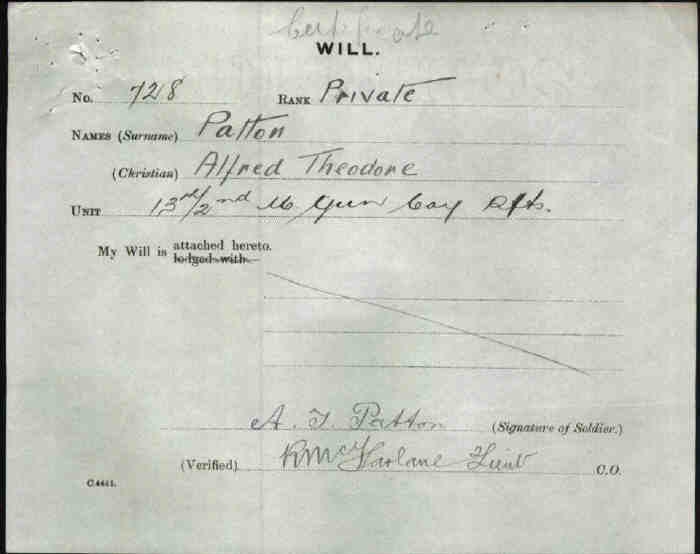 Certificate
WILL.
No. 728 RANK Private
NAMES (Surname) Patton
(Christian) Alfred Theodore
UNIT 13th/2nd M. Gun Coy Rfts.
My Will is attached hereto.
lodged with
A. T. Patton (Signature of Soldier.)
(Verified) R McFarlane Lieut C.O.
C.4441.